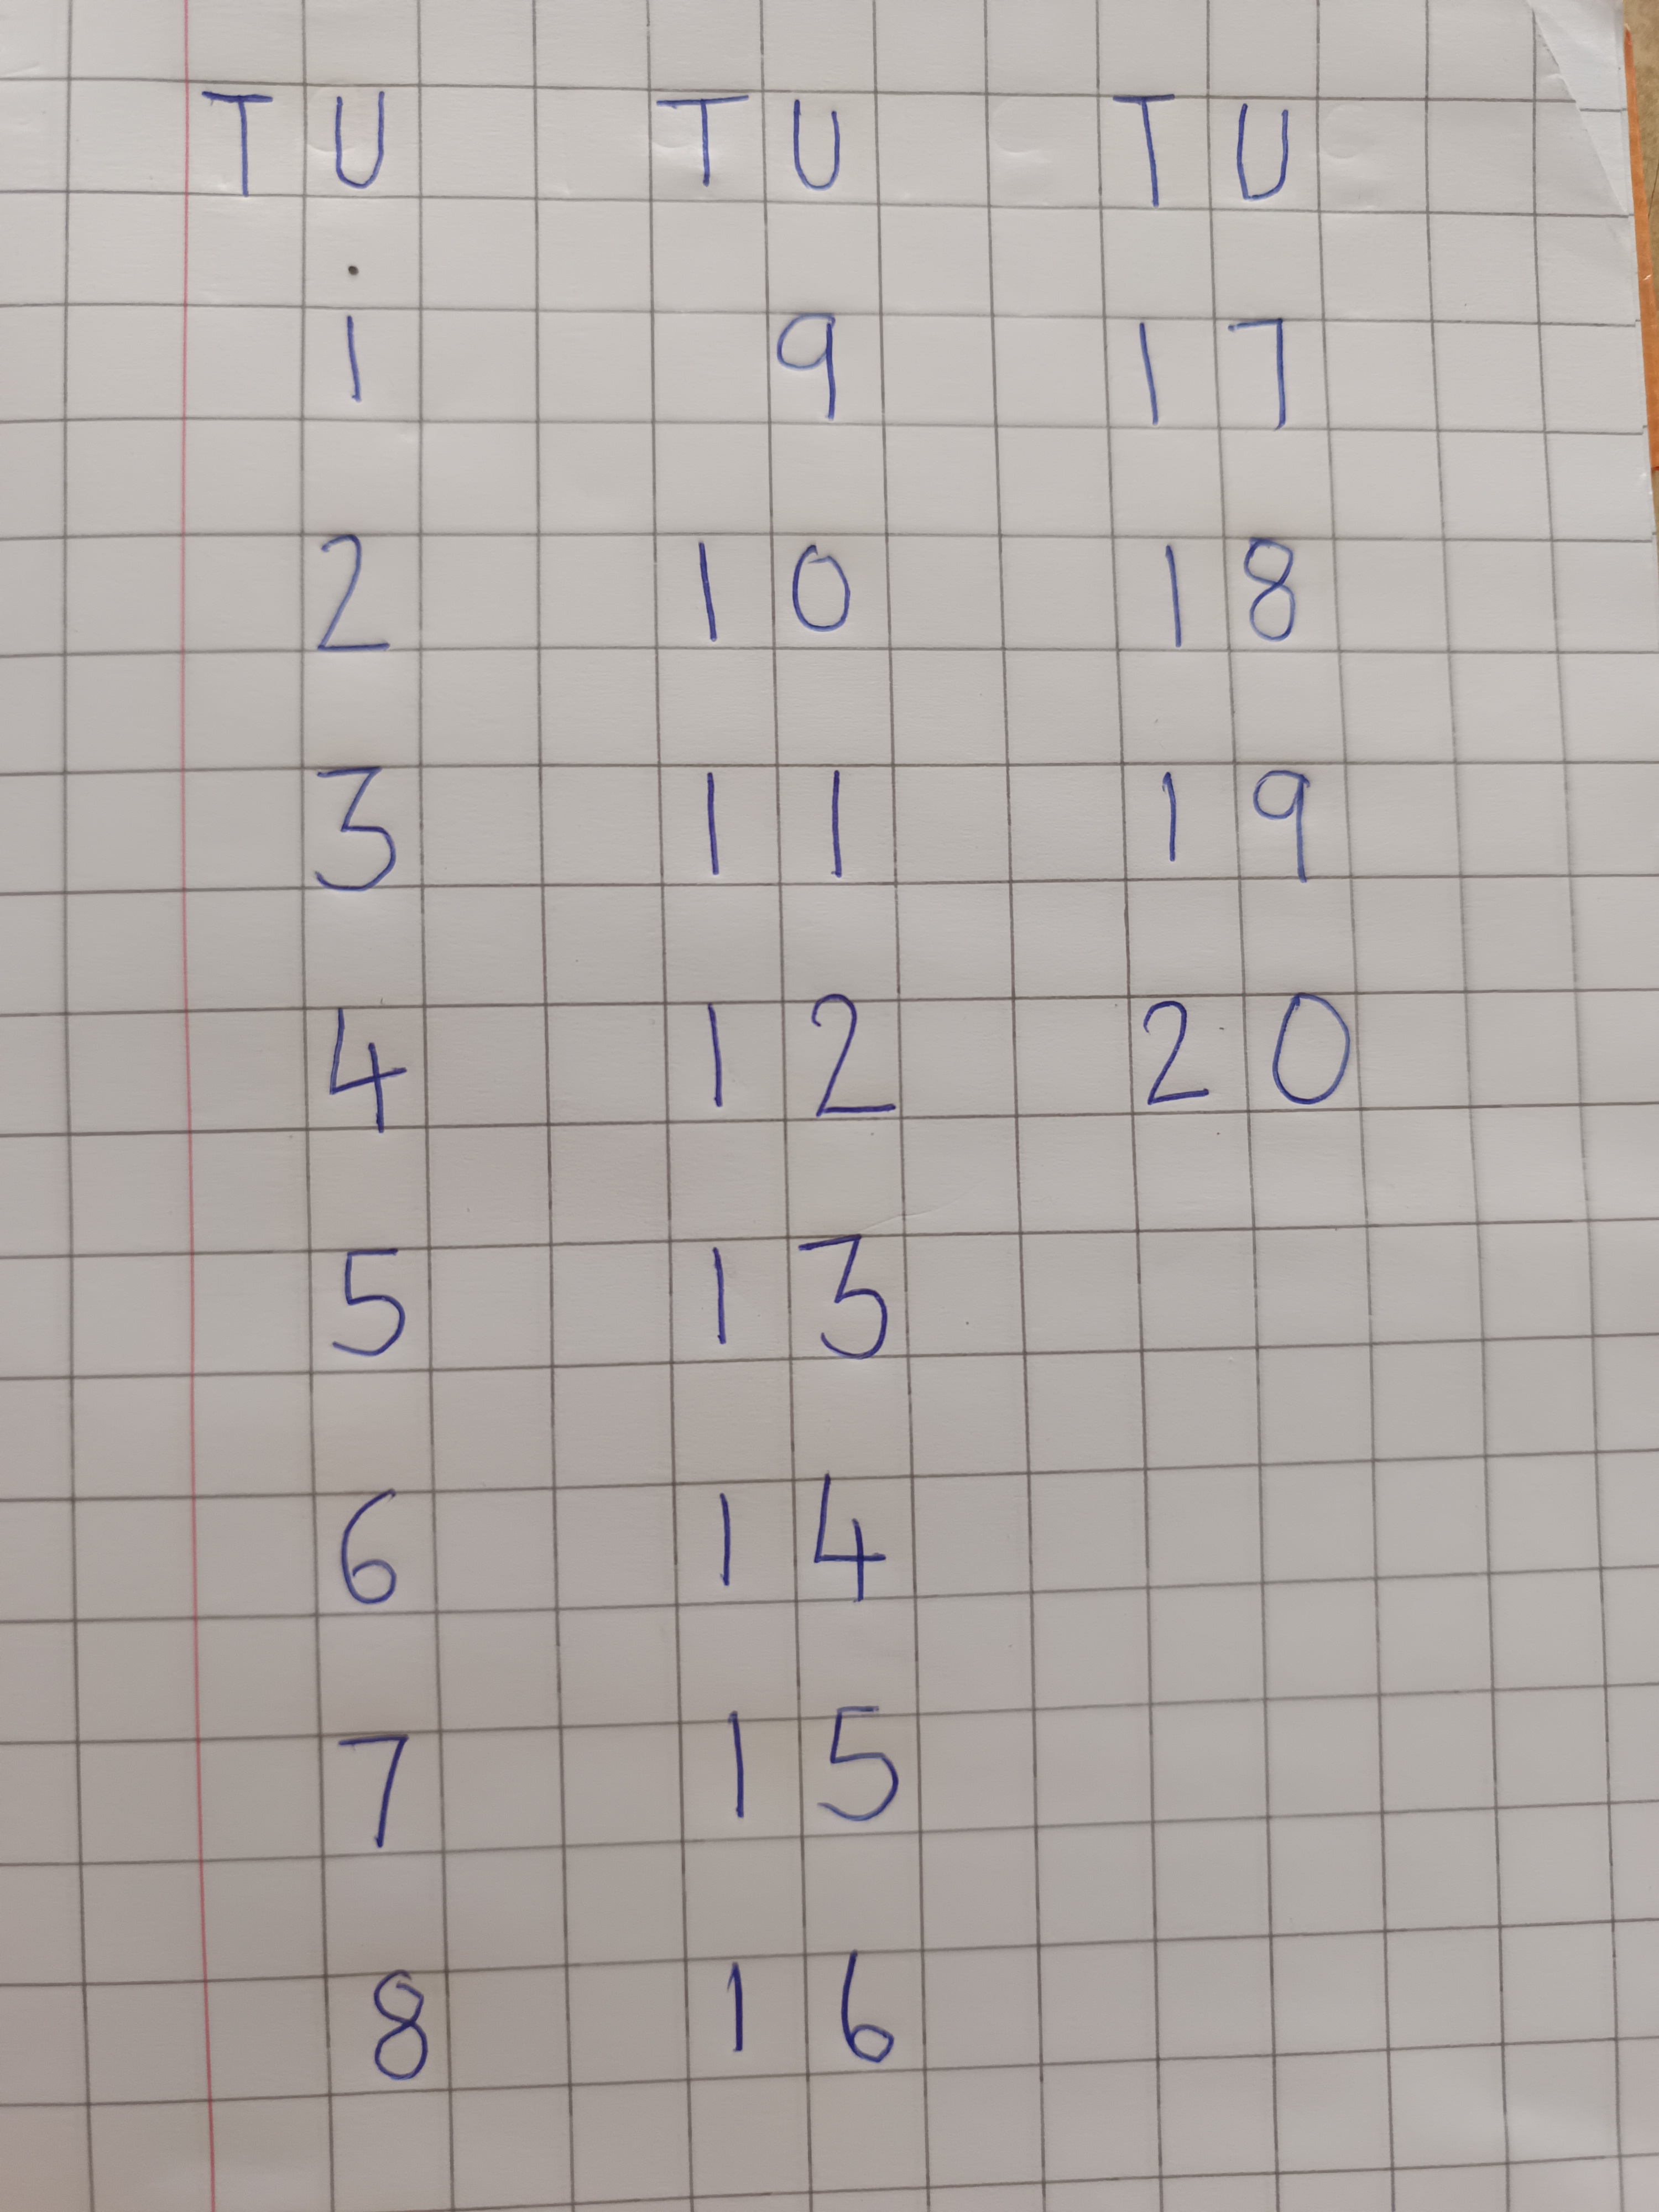 T U T U T U
1 9 1 7
2 1 0 1 8
3 1 1 1 9
4 1 2 2 0
5 1 3
6 1 4
7 1 5
8 1 6